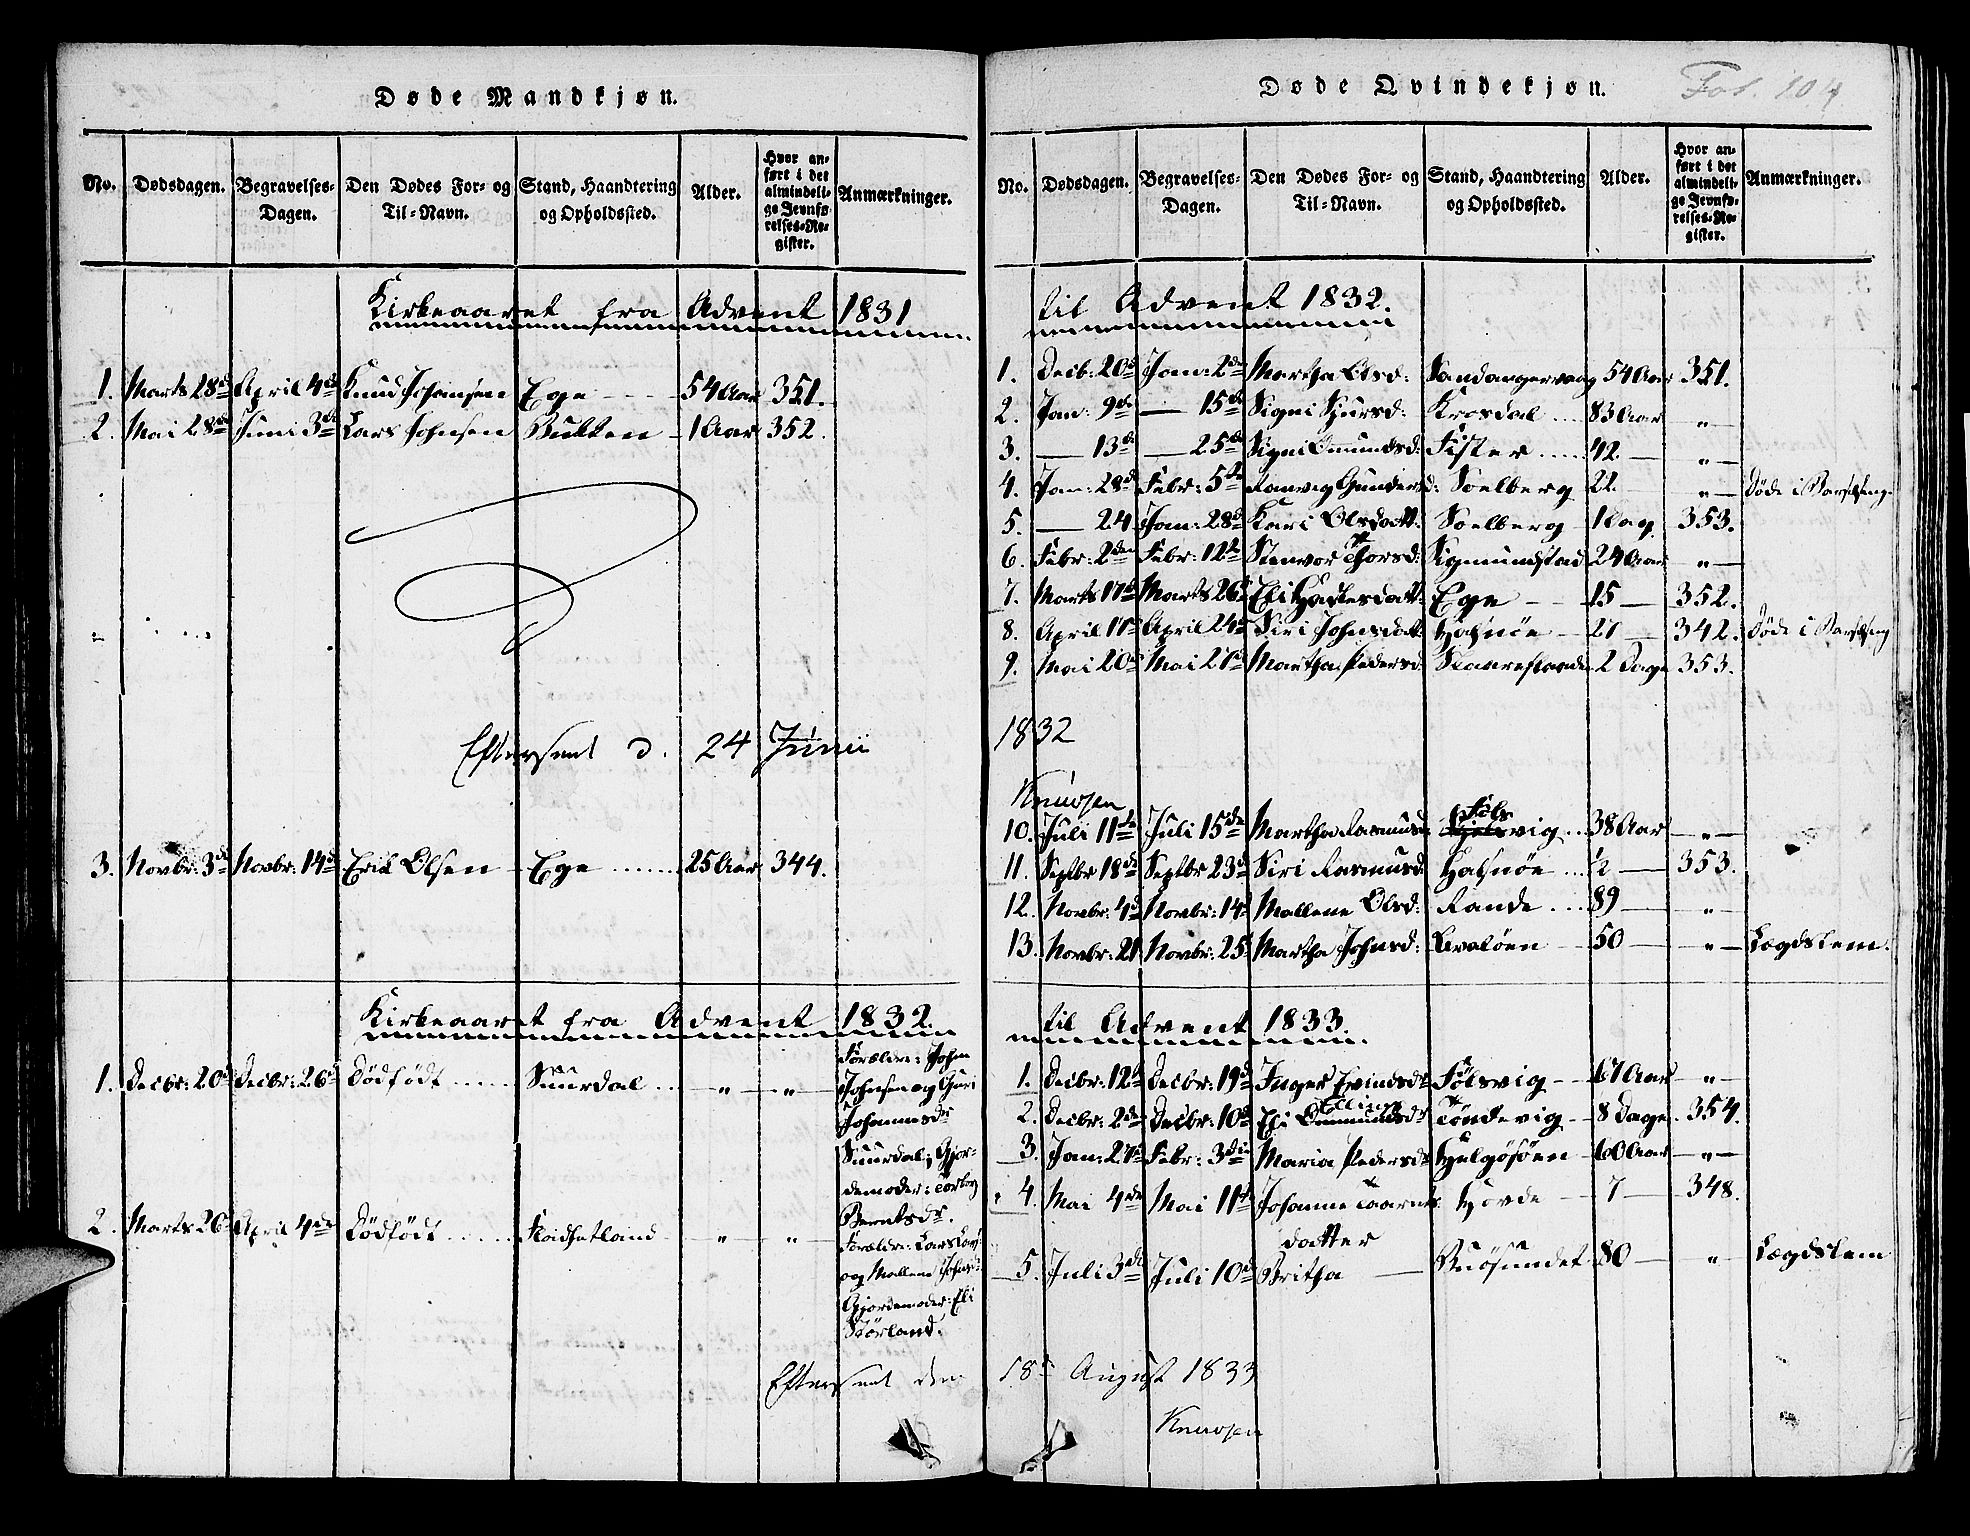 Døde Mandkjøn.
No. Dødsdagen. Begravelses-Dagen. Den Dødes For- og Til-Navn. Stand, Haandtering og Opholdssted. Alder. Hvor anført i det almindelige Jevnførelses-Register. Anmærkninger.
Kirkeaaret fra Advent 1831
1. Marts 28de April 4de Knud Johansen Ege 54 Aar 351.
2. Mai 28de Juni 3de Lars Johnsen Buktен 1 Aar 352.
Efterseet d. 24 Junii
3. Novbr: 3de Novbr: 14d Erik Olsen Ege 25 Aar 344.
Kirkeaaret fra Advent 1832.
1. Decbr: 20d Decbr: 26d Dödfödt Suurdal " "
Forældre: John
Johnsen og Guri
Johannesdr
Suurdal; Gjor-
demoder: Torborg
Berntsdr.
2. Marts 26d April 4de Dödfödt " "
Forældre: Lars
og Mallene Johnsd:
Gjordemoder: Eli
Eftersеet den
Døde Qvindekjøn.
Fol. 104
No. Dødsdagen. Begravelses-Dagen. Den Dødes For- og Til-Navn. Stand, Haandtering og Opholdssted. Alder. Hvor anført i det almindelige Jevnførelses-Register. Anmærkninger.
til Advent 1832.
1. Decb: 20d Jan: 2de Martha Olsd: 54 Aar 351.
2. Jan: 9de — 15de Signi Sjursd: Krosdal 83 Aar "
3. — 13de — 25de Signi Omundsd: Fister 42 — "
4. Jan: 28d Febr: 5te Ranvig Gundersd: Soelberg 22 " Døde i Barselseng
5. — 24 Jan: 28d Kari Olsdatt: Soelberg 1 Dag 353.
6. Febr: 2den Febr: 12te Steenvor Thorsd: Sigmundstad 24 Aar "
7. Marts 17de Marts 26d Eli Ege 15 — 352.
8. April 17de April 24de Siri Johnsdatt: Halsnöe 27 — 342. Døde i Barselseng
9. Mai 20de Mai 27de Martha Pedersd: 2 Dage 353.
1832
Knudsen
10. Juli 11te Juli 15de Martha Rasmusd: Föls
vig 38 Aar "
11. Septbr 18de Septbr 23d Siri Rasmusd: Halsnöe ½ — 353.
12. Novbr: 4de Novbr: 14d Mallene Olsd: Rande 89 — "
13. Novbr: 21 Novbr: 25 Martha Johnsd: 50 — " Lægdslem.
til Advent 1833.
1. Decbr: 12te Decbr: 19d Inger Evindsdr Fölsvig 67 Aar "
2. Decbr: 2den Decbr: 10d Eli Ellings
dr Tøndevig 8 Dage 354.
3. Jan: 27d Febr: 3die Maria Pedersdr Helgöföen 60 Aar "
4. Mai 4de Mai 11te Johanne Hovde 7 — 348.
datter
5. Juli 3de Juli 10de Britha — Buösundet 80 — " Lægdslem
18d August 1833
Knudsen